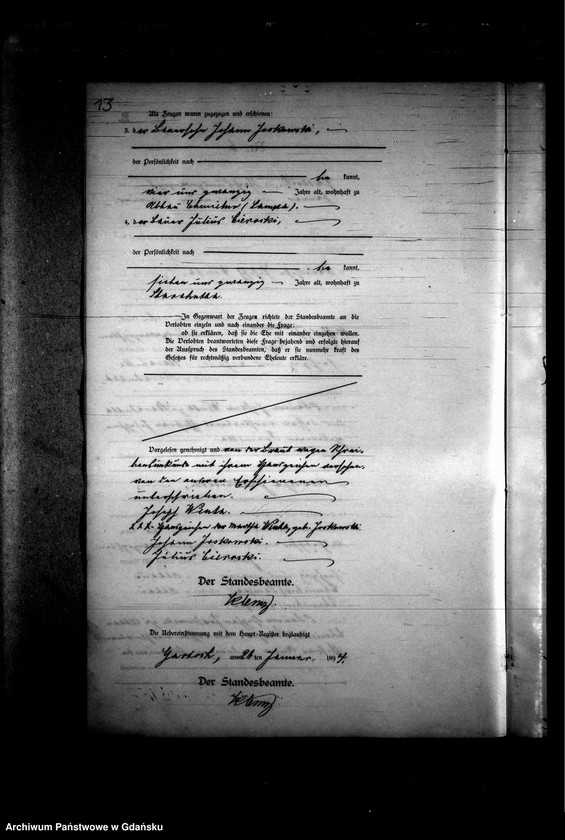 13
Als Zeugen waren zugezogen und erschienen:
3. der Johann Joskowski,
der Persönlichkeit nach
be kannt,
vier und zwanzig Jahre alt, wohnhaft zu
2. der Bauer Julius
der Persönlichkeit nach
be kannt,
sieben und zwanzig Jahre alt, wohnhaft zu
In Gegenwart der Zeugen richtete der Standesbeamte an die
Verlobten einzeln und nach einander die Frage:
ob sie erklären, daß sie die Ehe mit einander eingehen wollen.
Die Verlobten beantworteten diese Frage bejahend und erfolgte hierauf
der Ausspruch des Standesbeamten, daß er sie nunmehr kraft des
Gesetzes für rechtmäßig verbundene Eheleute erkläre.
Vorgelesen genehmigt und von der Braut wegen Schrei-
bensunkunde mit ihrem Handzeichen versehen,
von den anderen Erschienenen
unterschrieben.
Joseph
Handzeichen der Martha geb. Joskowski
Johann Joskowski.
Julius
Der Standesbeamte.
Klemz.
Die Uebereinstimmung mit dem Haupt-Register beglaubigt
am 26 ten Januar 1894.
Der Standesbeamte.
Klemz
Archiwum Państwowe w Gdańsku